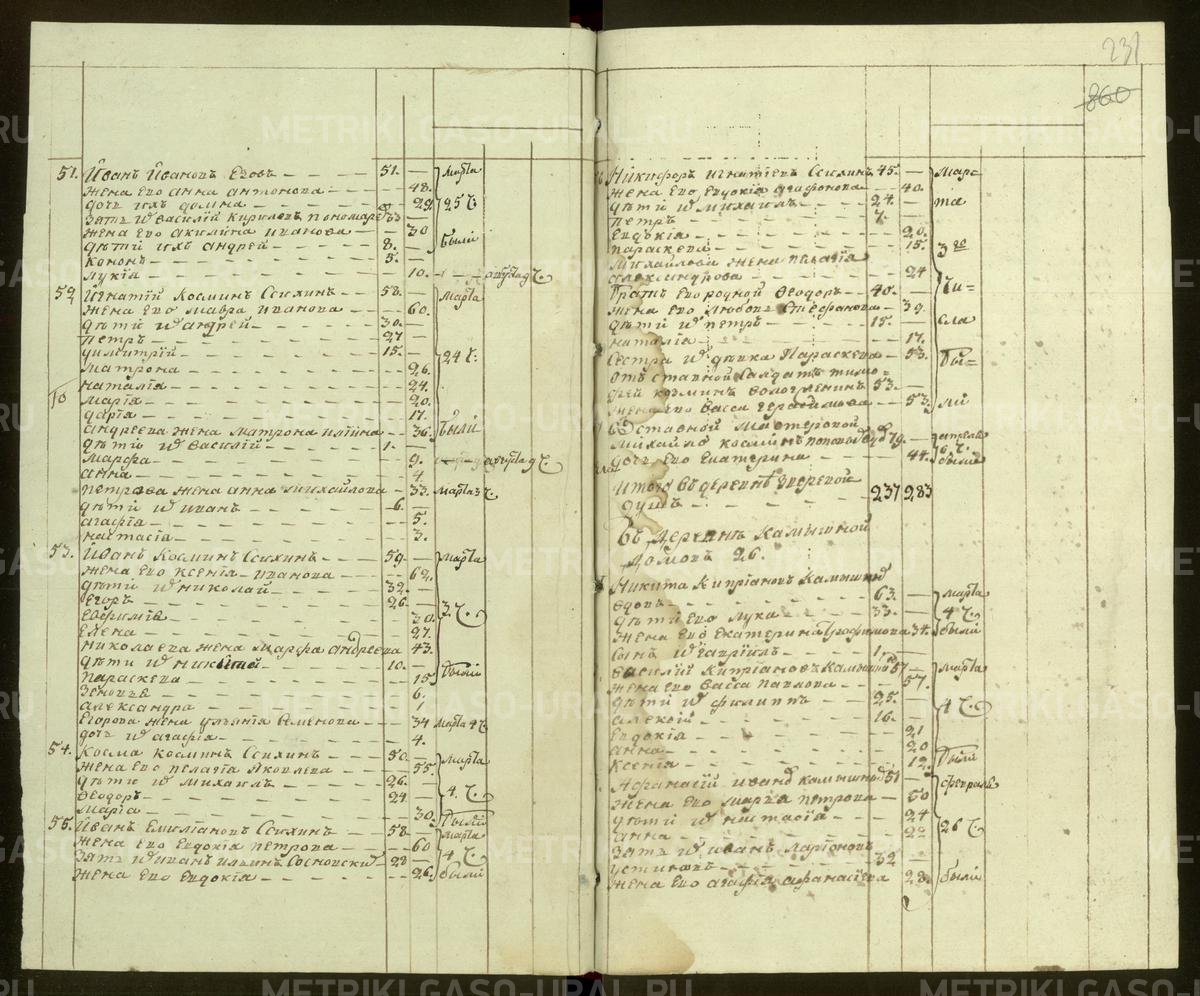 231
860
51. Иванъ Ивановъ Езовъ 51. Марта
Жена Его Анна Антонова 48.
дочь ихъ домна 22. 25 Ч.
Зять и Василий Кириловъ пономаре 33
Жена Его Акилина Иванова 30
дѣти ихъ Андрей 8. были
Кононъ 5.
Лукiя 10. августа 9 Ч.
52. Игнатiй Косминъ Ссилинъ 58. Марта
Жена Его Мавра Иванова 60.
дѣти и Андрей 30.
Петръ 27
димитрий 15. 24 Ч.
Матрона 26.
Наталiя 24.
Марiя 20.
дарiя 17.
Андреева жена Матрона Илiина 36. были
дѣти и Василий 1.
Марфа 9. августа 9 Ч.
Анна 4.
Петрова жена Анна Михайлова 33. Марта 3 Ч.
дѣти и Иванъ 6.
Агафiя 5.
Настасiя 3.
53. Иванъ Косминъ Ссилинъ 59. Марта
Жена Его Ксенiя Иванова 62.
дѣти и Николай 32.
Егоръ 26.
Евфимiя 30. 3 Ч.
Елена 27.
Николаева жена Марфа Андреева 43.
дѣти и Никита 10.
Параскева 15. были
Зеновiя 6.
Александра 1
Егорова жена улянiя Семенова 34 Марта 4 Ч.
дочь и Агафiя 4.
54. Косма Косминъ Ссилинъ 50. Марта
Жена Его Пелагiя Яковлева 55.
дѣти и Михаилъ 26.
Ѳеодоръ 24 4. Ч.
Марiя 30. были
55. Иванъ Емилiановъ Ссилинъ 58. Марта
Жена Его Евдокiя Петрова 60
Зять и Иванъ Ильинъ Сосновский 28 4 Ч.
Жена Его Евдокiя 26. были
Никифоръ Игнатiевъ Ссилинъ 45. Мар=
Жена Его Евдокiя Агафонова 40.
дѣти и Михаилъ 24. та
Петръ 7.
Евдокiя 20.
Параскева 15. 3го
Михайлова жена Пелагiя
Александрова 24
Братъ Его родной Ѳеодоръ 40. Чи=
Жена Его Любовь Стефанова 39.
дѣти и Петръ 15. сла
Наталiя 17.
Сестра и дѣвка Параскева 53. Бы=
Отставной Солдатъ тимо=
фей козминъ Вологженинъ 53.
Жена Его Васса Герасимова 53. ли
Отставной Мастеровой
Михайло Косминъ Поповъ 79.
дочь Его Екатерина 44. были
Итого въ деревнѣ Зверевой
душъ 237 283
Въ Деревнѣ Камышной
Домовъ 26.
Никита Киприановъ Камышной
вдовъ 63. Марта
дѣти Его Лука 33. 4 Ч.
Жена Его Екатерина Трофимова 34. были
Сынъ и Гаврiилъ 1.
Василий Киприановъ Камышной 57 Марта
Жена Его Васса Павлова 57.
дѣти и Филиппъ 25.
Алексiй 16. 4 Ч.
Евдокiя 21
Анна 20
Ксенiя 12. были
Афанасий Иванов Камышной 51 Февраля
Жена Его Марѳа Петрова 50
дѣти и Настасiя 24
Анна 20 26 Ч.
Зять и Иванъ Ларiоновъ
устиновъ 32
Жена Его Агафiя Афанасiева 28. были